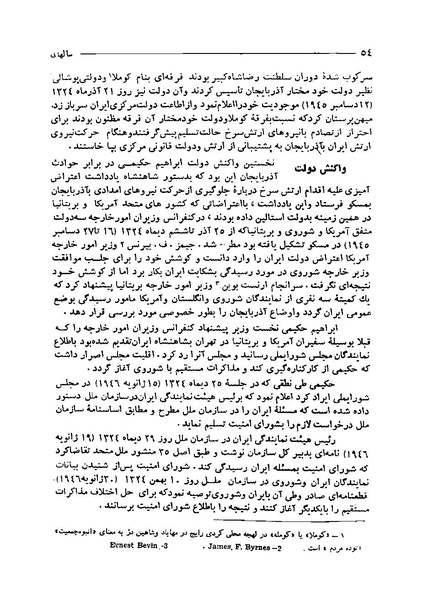 ۵۴ سالهای
سرکوب شدهٔ دوران سلطنت رضاشاه‌کبیر بودند فرقه‌ای بنام کوملا۱ ودولتی‌پوشالی
نظیر دولت خود مختار آذربایجان تاسیس کردند وآن دولت نیز روز ۲۱ آذرماه ۱۳۲۴
(۱۲دسامبر ۱۹۴۵) موجودیت خودرااعلام‌نمود وازاطاعت دولت‌مرکزی‌ایران سرباز زد،
میهن‌پرستان کردکه نسبت‌بفرقهٔ کوملاودولت خودمختار آن فرقه مظنون بودند برای
احتراز ازتصادم بانیروهای ارتش‌سرخ حالت‌تسلیم‌پیش‌گرفتندوهنگام حرکت‌نیروی
ارتش ایران بآذربایجان به پشتیبانی از ارتش ودولت قانونی مرکزی بپا خاستند .
واکنش دولت نخستین واکنش دولت ابراهیم حکیمی در برابر حوادث
آذربایجان این بود که بدستور شاهنشاه یادداشت اعتراض
آمیزی علیه اقدام ارتش سرخ دربارهٔ جلوگیری ازحرکت نیروهای امدادی بآذربایجان
بمسکو فرستاد واین یادداشت ؛ بااعتراضاتی که کشور های متحد آمریکا و بریتانیا
در همین زمینه بدولت استالین داده بودند ؛ درکنفرانس وزیران امورخارجه سه‌دولت
متفق آمریکا و شوروی و بریتانیاکه از ۲۵ آذر تاششم دیماه ۱۳۲۴ (۱۶ تا۲۷ دسامبر
۱۹۴۵) در مسکو تشکیل یافته بود مطرح شد. جیمز . ف . بیرنس ۲ وزیر امور خارجه
آمریکا اعتراض دولت ایران را وارد دانست و کوشش خود را برای جلب موافقت
وزیر خارجه شوروی در مورد رسیدگی بشکایت ایران بکار برد اما از کوشش خود
نتیجه‌ای نگرفت . سرانجام ارنست بوین ۳ وزیر امور خارجه بریتانیا پیشنهاد کرد که
یک کمیتهٔ سه نفری از نمایندگان شوروی وانگلستان وآمریکا مامور رسیدگی بوضع
عمومی ایران گردد واوضاع آذربایجان را بطور خصوصی مورد بررسی قرار دهد .
ابراهیم حکیمی نخست وزیر پیشنهاد کنفرانس وزیران امور خارجه را کــه
قبلا بوسیلهٔ سفیران آمریکا و بریتانیا در تهران بشاهنشاه ایران‌تقدیم شده‌بود باطلاع
نمایندگان مجلس شورایملی رسانید و مجلس آنرا رد کرد . اقلیت مجلس اصرار داشت
که حکیمی از کارکناره‌گیری کند و مذاکرات مستقیم با شوروی آغاز گردد .
حکیمی طی نطقی که در جلسهٔ ۲۵ دیماه ۱۳۲۴ (۱۵ ژانویه ۱۹۴۶) در مجلس
شورایملی ایراد کرد اعلام نمود که برئیس هیئت‌نمایندگی ایران‌درسازمان‌ملل دستور
داده شده است که مسئلهٔ ایران را در سازمان ملل مطرح و مطابق اساسنامهٔ سازمان
ملل درخواست لازم‌را بشورای امنیت تسلیم نماید .
رئیس هیئت نمایندگی ایران در سازمان ملل روز ۲۹ دیماه ۱۳۲۴ (۱۹ ژانویه
۱۹۴۶) نامه‌ای بدبیر کل سازمان نوشت و طبق اصل ۳۵ منشور ملل متحد تقاضاکرد
که شورای امنیت بمسئله ایران رسیدگی کند . شورای امنیت پس‌از شنیدن بیانات
نمایندگان ایران وشوروی در سازمان ملل روز ۱۰ بهمن ۱۳۲۴ (۳۰ژانویه۱۹۴۶)،
قطعنامه‌ای صادر وطی آن بایران وشوروی‌توصیه نمودکه برای حل اختلاف مذاکرات
مستقیم را بایکدیگر آغاز کنند و نتیجه را باطلاع شورای امنیت برسانند .
۱ – «کوملا» یا «کومله» در لهجه محلی کردی رایج در مهاباد وشاهین دژ به معنای «انبوه‌جمعیت»
«توده مردم » است . James, F. Byrnes –2 . Ernest Bevin, –3